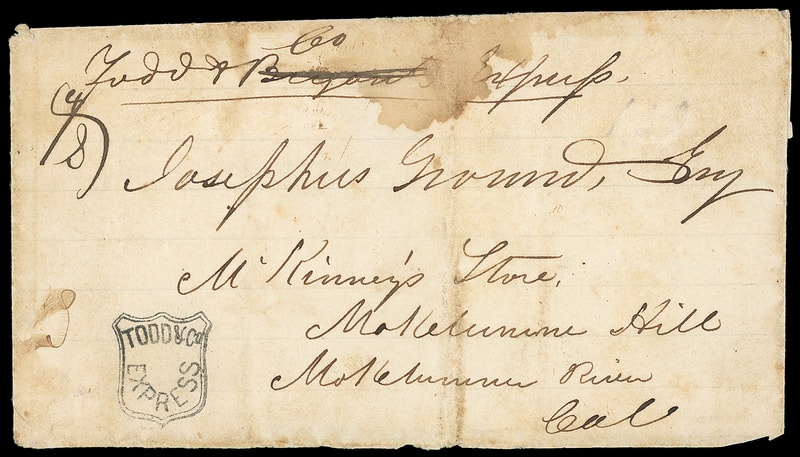 Todd & Bryan's Co Express.
Josephus Ground, Esq
McKinney's Store,
Mokelumne Hill
Mokelumne River
Cal
TODD & Co
EXPRESS